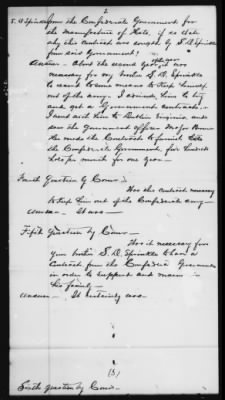 2
from the Confederate Government for
the manufacture of Hats, if so state
why this contract was sought by S. D. Sprinkle
from said Government?
Answer - About the second year it was
necessary for my brother S. D. Sprinkle
to use some means to keep himself
out of the army. I advised him to try
and get a Government contract.
I went with him to Virginia, and
saw the Government officer Major
he made the Contract to furnish Hats
the Confederate Government, for
troops much for one year -
Fourth Question by Comr :
Was this contract necessary
to keep him out of the Confederate army -
Answer - It was -
Fifth Question by Comr -
Was it necessary for
your brother S. D. Sprinkle to have a
Contract from the Confederate Government
in order to support and main
his family -
Answer - It certainly was -
(3)
Sixth question by Comr -